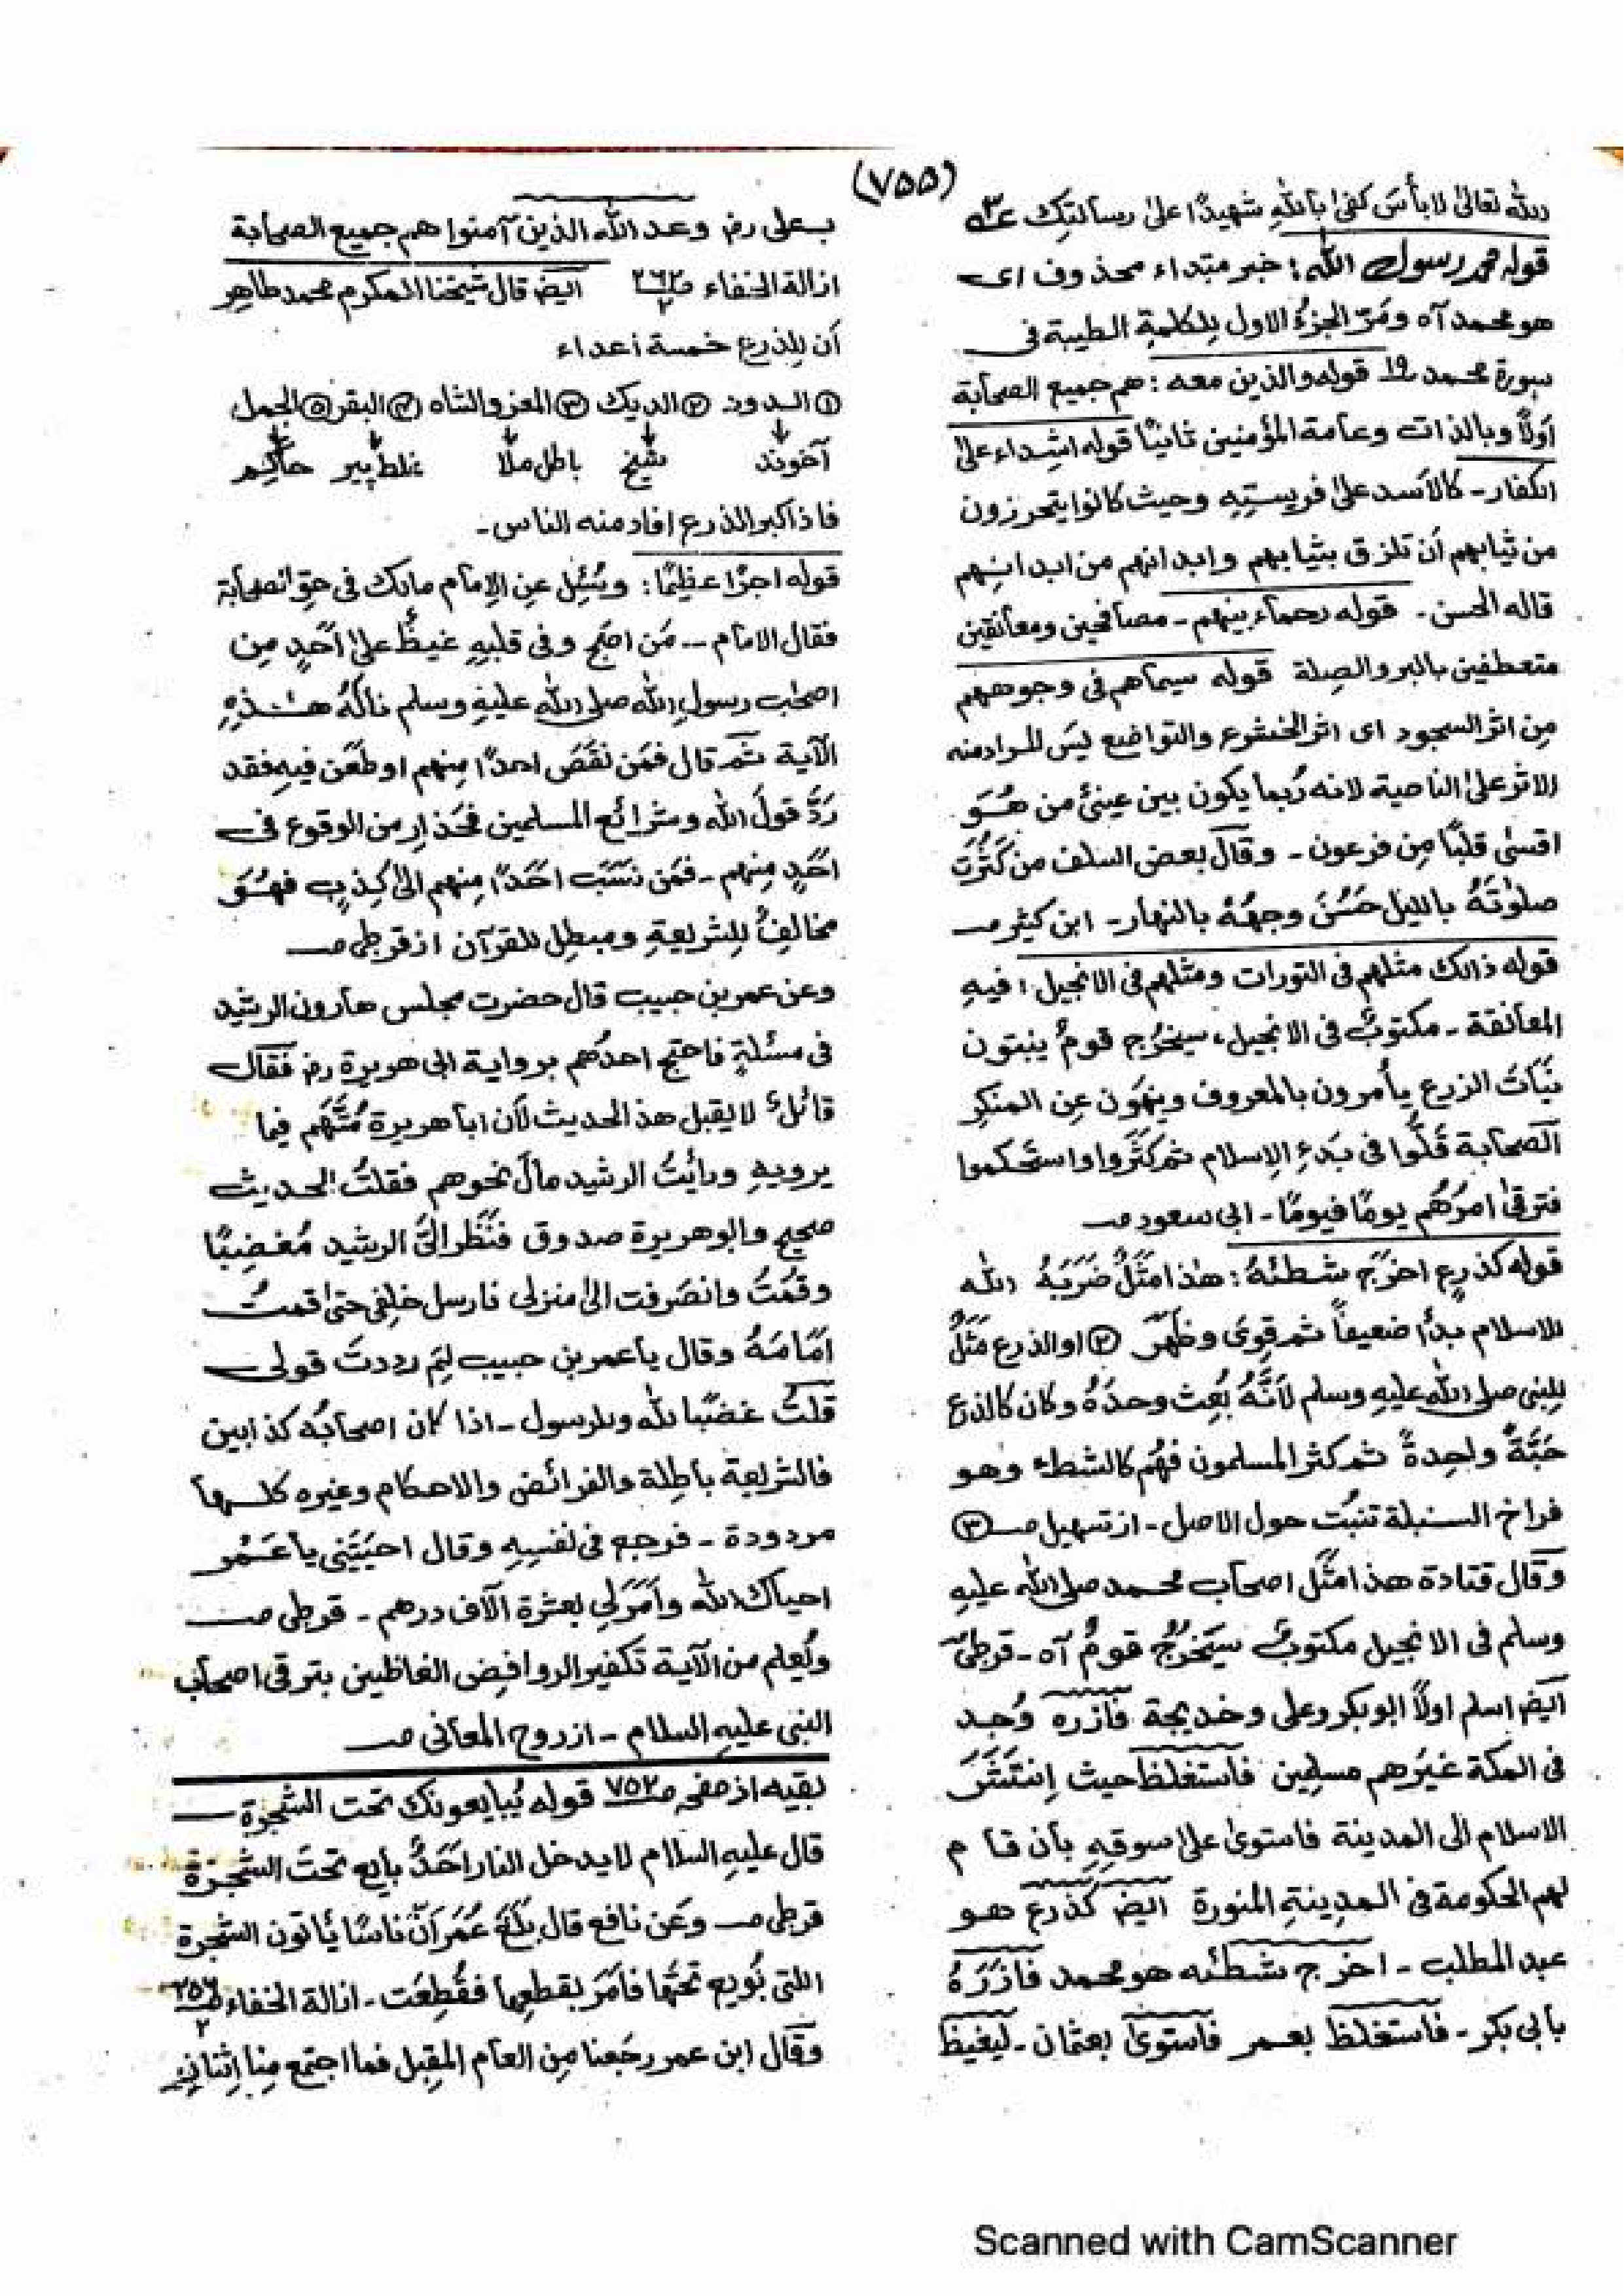 (٧٥٥)
الله تعالیٰ لا بأسَ کفیٰ بأللهِ شهیدًا علیٰ رسألتِک
قوله محمد رسول الله: خبر مبتداء محذوف ای
هو محمد آه ومَرّ الجزءُ الاول لِلکلمةِ الطیبة فی
سورة محمد ١٩ قوله والذین معه: هم جمیع الصحأبة
اَولاً وبالذات وعأمة المؤمنین ثانیًا قوله اشِداء علیٰ
الکفار۔ کالأسد علیٰ فریستِهِ وحیث کانوا یتحرزون
من ثیابهم أن تلزق بثیابهم وابدانهم من ابدانِهم
قاله الحسن۔ قوله رحمأء بینهم۔ مصافحین ومعأنقین
متعطفین بالبر والصِلة قوله سیمأهم فی وجوههم
مِن اثر السجود ای اثر الخشوع والتواضع لیسَ المراد منه
الاثر علیٰ الناصیة لانه رُبما یکون بین عینیْ من هُوَ
اقسیٰ قلبًا مِن فرعون۔ وقالَ بعض السلف من کَثُرَت
صلوٰتَهُ باللیل حَسُنَ وجهُهُ بالنهأر۔ ابن کثیر صـ
قوله ذالک مثلهم فی التورات ومثلهم فی الانجیل: فیهِ
المعأنقة۔ مکتوبٌ فی الانجیل، سیخرُج قومٌ ینبتون
نَبَأتَ الزرع یأمرون بالمعروف وینهَون عنِ المنکرِ
الصحأبة قَلُّوا فی بَدءِ الاِسلام ثم کَثُروا واستحکموا
فترقیٰ امرُهُم یومًا فیومًا۔ ابی سعود صـ
قوله کذرعٍ اخرَجَ شطئهُ: هٰذا مَثَلٌ ضَرَبَهُ الله
للاسلام بدأ ضعیفاً ثم قوِیَ وظهَرَ ② او الذرع مَثَلٌ
لِلنبی صلی الله علیهِ وسلم لأنَّهُ بُعِث وحدَهُ وکان کالذرع
حَبَّةً واحِدةً ثم کثر المسلمون فهُم کالشطاء وهو
فراخ السنبلة تنبُت حول الاصل۔ از تسهیل صـ ③
وقال قتادة هذا مَثَل اصحأب محمد صلی الله علیهِ
وسلم فی الانجیل مکتوبٌ سیَخرُجُ قومٌ آه۔ قرطبی صـ
ایضَ اسلم اولاً ابوبکر وعلی وخدیجة فأزره وُجِد
فی المکة غیرَهم مسلِمین فاستغلظ حیث اِنتَشَرَ
الاسلام الی المدینة فاستویٰ علیٰ سوقِهِ بأن قأم
لهم الحکومة فی المدِینةِ المنورة ایضَ کَذرع هو
عبد المطلب۔ اخرج شطئه هو محمد فأزَرَهُ
بأبی بکر۔ فأستغلظ بعمر فأستویٰ بعثمان۔ لیغیظَ
بعلی رض وعد الله الذین آمنوا هم جمیع الصحأبة
ازالة الخفاء صـ٢٦٢/٢ ایضَ قال شیخنا المکرم محمد طاهر
أن لِلذرع خمسة اعداء
① الدود ② الدیک ③ المعز والشاه ④ البقر ⑤ الجمل
آخوند شیخ باطل ملا غلط پیر حاکِم
فاذا کبر الذرع افاد منه الناس۔
قوله اجرًا عظیمًا: وسُئِل عنِ الاِمأم مالک فی حقِ الصحأبة
فقال الامأم ۔۔ مَن اصبَح وفی قلبِهِ غیظٌ علیٰ اَحَدٍ مِن
اصحٰب رسولِ الله صلی الله علیهِ وسلم نالَهُ هٰذهِ
الآیة ثم قال فمَن نَقَصَ احدًا مِنهم او طعَن فیهِ فقد
رَدَّ قولَ الله وشرائع المسلمین فحَذارِ من الوقوع فی
اَحَدٍ مِنهم۔ فمَن نَسَب اَحَدًا مِنهم الیٰ کِذبٍ فهُوَ
مخالفٌ لِلشریعةِ ومبطِل للقرآن از قرطبی صـ
وعن عمر بن حبیب قال حضرت مجلس هأرون الرشید
فی مسئلةٍ فأحتج احدُهم بروایة ابی هریرة رض فقَال
قائلٌ لا یقبل هذ الحدیث لأن ابأ هریرة مُتَّهَم فیما
یرویهِ ورأیتُ الرشید مألَ نحوهم فقلتُ الحدیث
صحیح وابوهریرة صدوق فنَظَر الیَّ الرشید مُغضِبًا
وقُمتُ وانصَرفت الیٰ منزلی فارسل خلفی حتیٰ قمتُ
اَمَامَهُ وقال یأعمر بن حبیب لِمَ رددتَ قولی
قلتُ غضبًا لله وللرسول۔ اذا کان اصحأبُه کذابین
فالشریعة بأطِلة والفرائض والاحکام وغیره کلهأ
مردودة۔ فرجع فی نفسِهِ وقال احیَیتَنی یأ عُمَر
احیاکَ الله واَمَرَ لِی بعشرة آلاف درهم۔ قرطبی صـ
ویُعلم من الآیة تکفیر الروافِض الغائظین بترقی اصحأب
النبی علیهِ السلام۔ از روح المعأنی صـ
بقیه از صفحه صـ٧٥٢ قوله یُبایعونک تحت الشجرة
قال علیهِ السلام لا یدخل النار اَحَدٌ بأیع تحتَ الشجرَة
قرطبی صـ وعَن نافع قال بَلَغَ عُمَر اَنَّ ناسًا یأتون الشجرة
اللتی بُویع تحتَها فأمَرَ بقطعِهأ فقُطِعَت۔ ازالة الخفاء صـ٢٥٦/٢
وقال ابن عمر رجَعنا مِن العأم المقبِل فما اجتمع مِنا اِثنانِ
Scanned with CamScanner